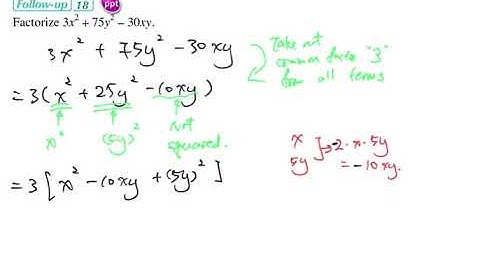 Follow-up 18 ppt
Factorize 3x² + 75y² − 30xy.
3x² + 75y² − 30xy
Take out common factor "3" for all terms
= 3(x² + 25y² − 10xy)
x² (5y)² Not squared.
x
5y
→ −2·x·5y
= −10xy.
= 3[x² − 10xy + (5y)²]